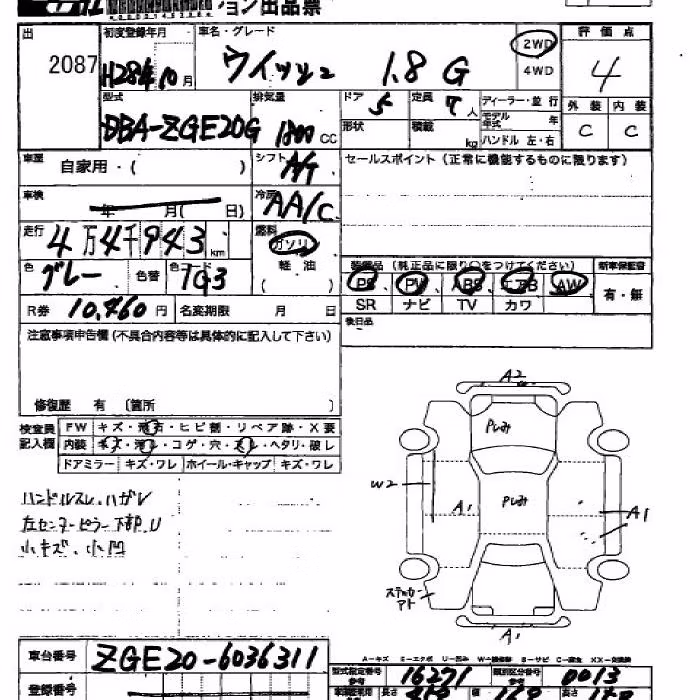 ョン出品票
出 2087 初度登録年月 H28年10月 車名・グレード ウイッシュ 1.8 G 2WD 4WD 評価点 4
型式 DBA-ZGE20G 排気量 1800 CC ドア 5 定員 7人 ディーラー・並行 外装 内装
形状 積載 kg モデル年式 年 ハンドル 左・右 C C
車歴 自家用・( ) シフト セールスポイント(正常に機能するものに限ります)
車検 年 月( 日) 冷房 AA/C
走行 4万4千943km 燃料 ガソリン
軽油
( )
装備品(純正品に限り○をつけてください) 新車保証書
色 グレー 色替 色コード 1G3 PS PW ABS エアB AW 有・無
R券 10,460円 名変期限 月 日 SR ナビ TV カワ
後日品
注意事項申告欄(不具合内容等は具体的に記入して下さい)
修復歴 有 〔箇所 〕
検査員記入欄 FW キズ・飛石・ヒビ割・リペア跡・X要
内装 キズ・汚レ・コゲ・穴・スレ・ヘタリ・破レ
ドアミラー キズ・ワレ ホイール・キャップ キズ・ワレ
ハンドルスレ、ハガレ
左センターピラー下部U
小キズ、小凹
A2
Pしみ
W2
Pしみ
A1
A1
ステッカーアト
A1
A=キズ E=エクボ U=凹み W=補修跡 S=サビ C=腐食 XX=交換済
車台番号 ZGE20-6036311
型式指定番号 参考 16271 類別区分番号 参考 0013
登録番号
長さ 幅